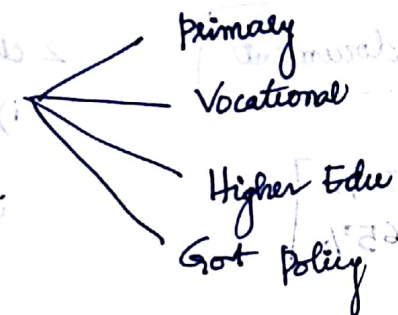 Primary
Vocational
Higher Edu
Got Policy
65%